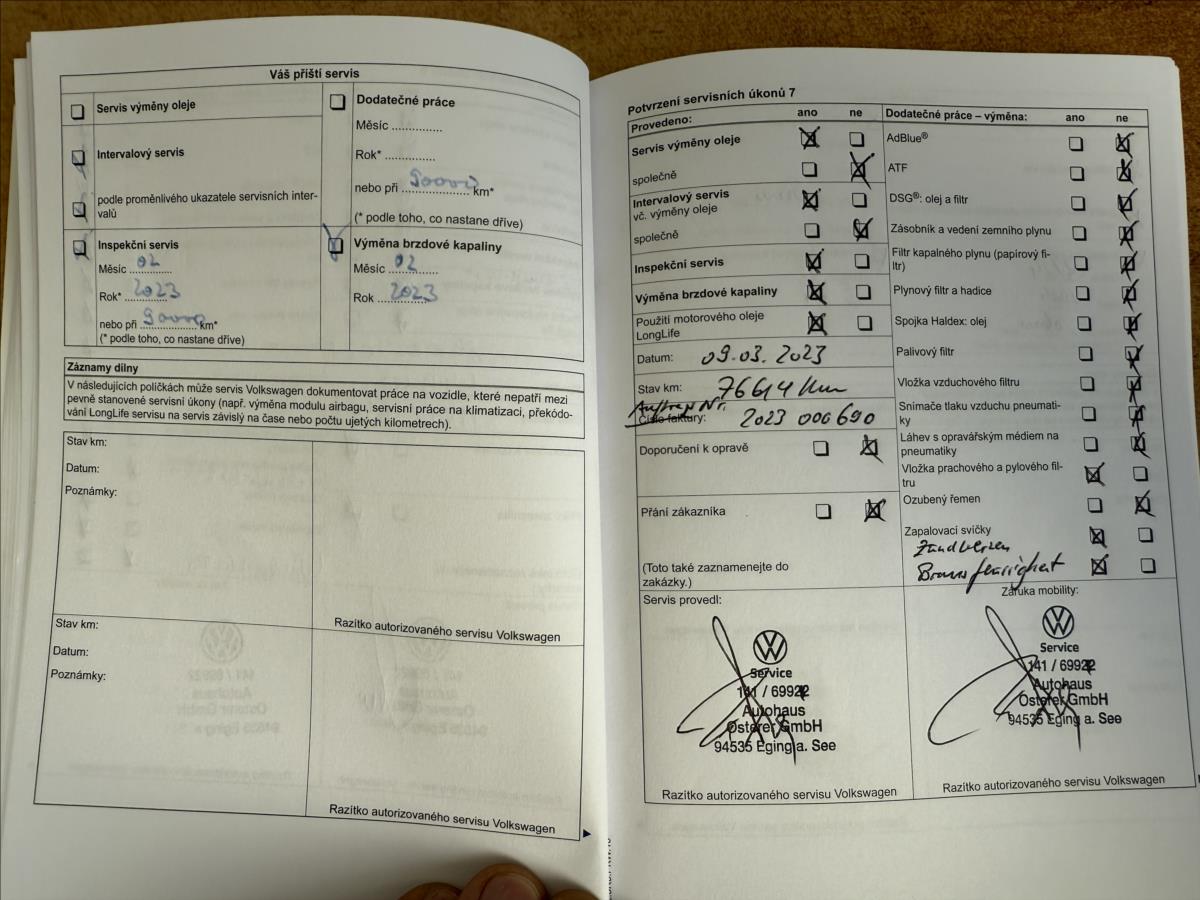 Váš příští servis
Servis výměny oleje
Intervalový servis
podle proměnlivého ukazatele servisních inter-
valů
Inspekční servis
Měsíc 02
Rok* 2023
nebo při 90000 km*
(* podle toho, co nastane dříve)
Dodatečné práce
Měsíc ...............
Rok* ..............
nebo při 90000 km*
(* podle toho, co nastane dříve)
Výměna brzdové kapaliny
Měsíc 02
Rok 2023
Záznamy dílny
V následujících políčkách může servis Volkswagen dokumentovat práce na vozidle, které nepatří mezi
pevně stanovené servisní úkony (např. výměna modulu airbagu, servisní práce na klimatizaci, překódo-
vání LongLife servisu na servis závislý na čase nebo počtu ujetých kilometrech).
Stav km:
Datum:
Poznámky:
Razítko autorizovaného servisu Volkswagen
Stav km:
Datum:
Poznámky:
Razítko autorizovaného servisu Volkswagen
Potvrzení servisních úkonů 7
Provedeno: ano ne
Servis výměny oleje
společně
Intervalový servis
vč. výměny oleje
společně
Inspekční servis
Výměna brzdové kapaliny
Použití motorového oleje
LongLife
Datum: 09.03.2023
Stav km: 76614 Km
Auftrags Nr.
Číslo faktury: 2023 000690
Doporučení k opravě
Přání zákazníka
(Toto také zaznamenejte do
zakázky.)
Dodatečné práce – výměna: ano ne
AdBlue®
ATF
DSG®: olej a filtr
Zásobník a vedení zemního plynu
Filtr kapalného plynu (papírový fi-
ltr)
Plynový filtr a hadice
Spojka Haldex: olej
Palivový filtr
Vložka vzduchového filtru
Snímače tlaku vzduchu pneumati-
ky
Láhev s opravářským médiem na
pneumatiky
Vložka prachového a pylového fil-
tru
Ozubený řemen
Zapalovací svíčky
Zündkerzen
Bremsflüssigkeit
Servis provedl:
Service
141 / 69922
Autohaus
Osterer GmbH
94535 Eging a. See
Razítko autorizovaného servisu Volkswagen
Záruka mobility:
Service
141 / 69922
Autohaus
Osterer GmbH
94535 Eging a. See
Razítko autorizovaného servisu Volkswagen